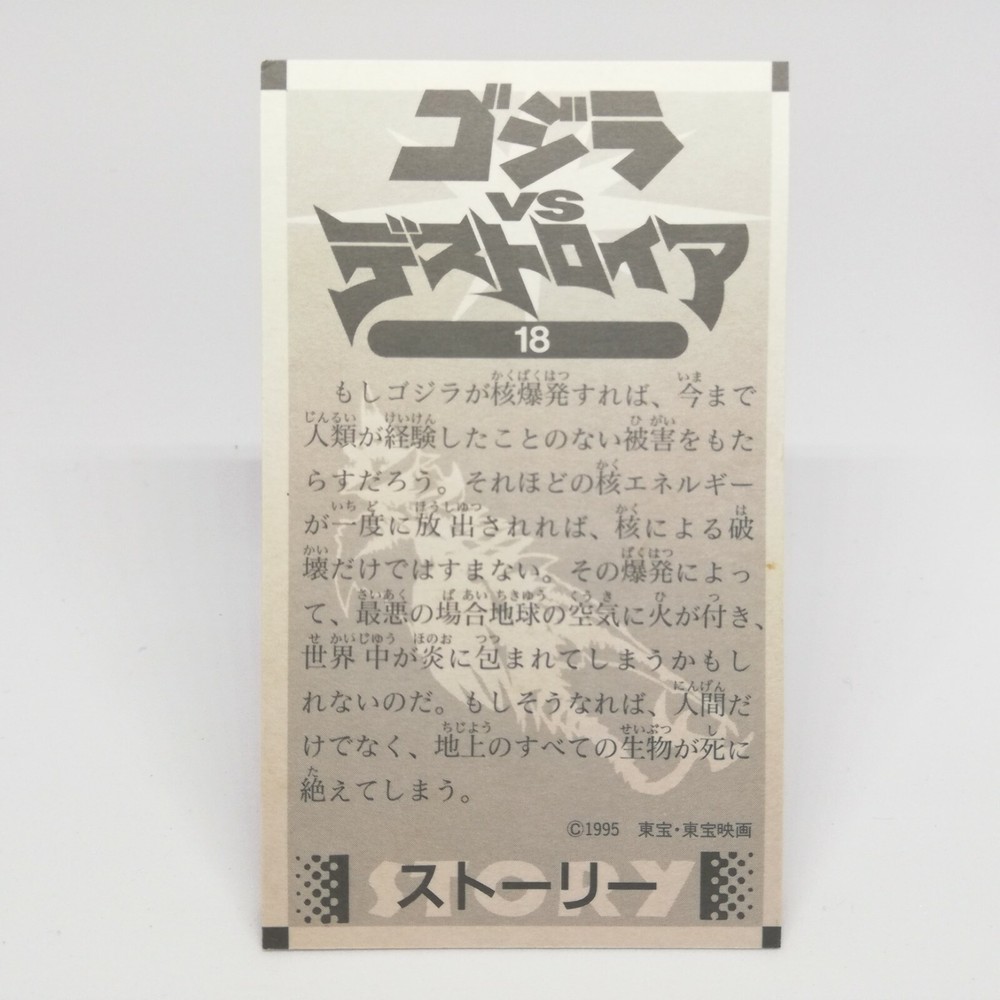 ゴジラ
VS
デストロイア
18
もしゴジラが核爆発すれば、今まで
人類が経験したことのない被害をもた
らすだろう。それほどの核エネルギー
が一度に放出されれば、核による破
壊だけではすまない。その爆発によっ
て、最悪の場合地球の空気に火が付き、
世界中が炎に包まれてしまうかもし
れないのだ。もしそうなれば、人間だ
けでなく、地上のすべての生物が死に
絶えてしまう。
©1995 東宝・東宝映画
STORY
ストーリー